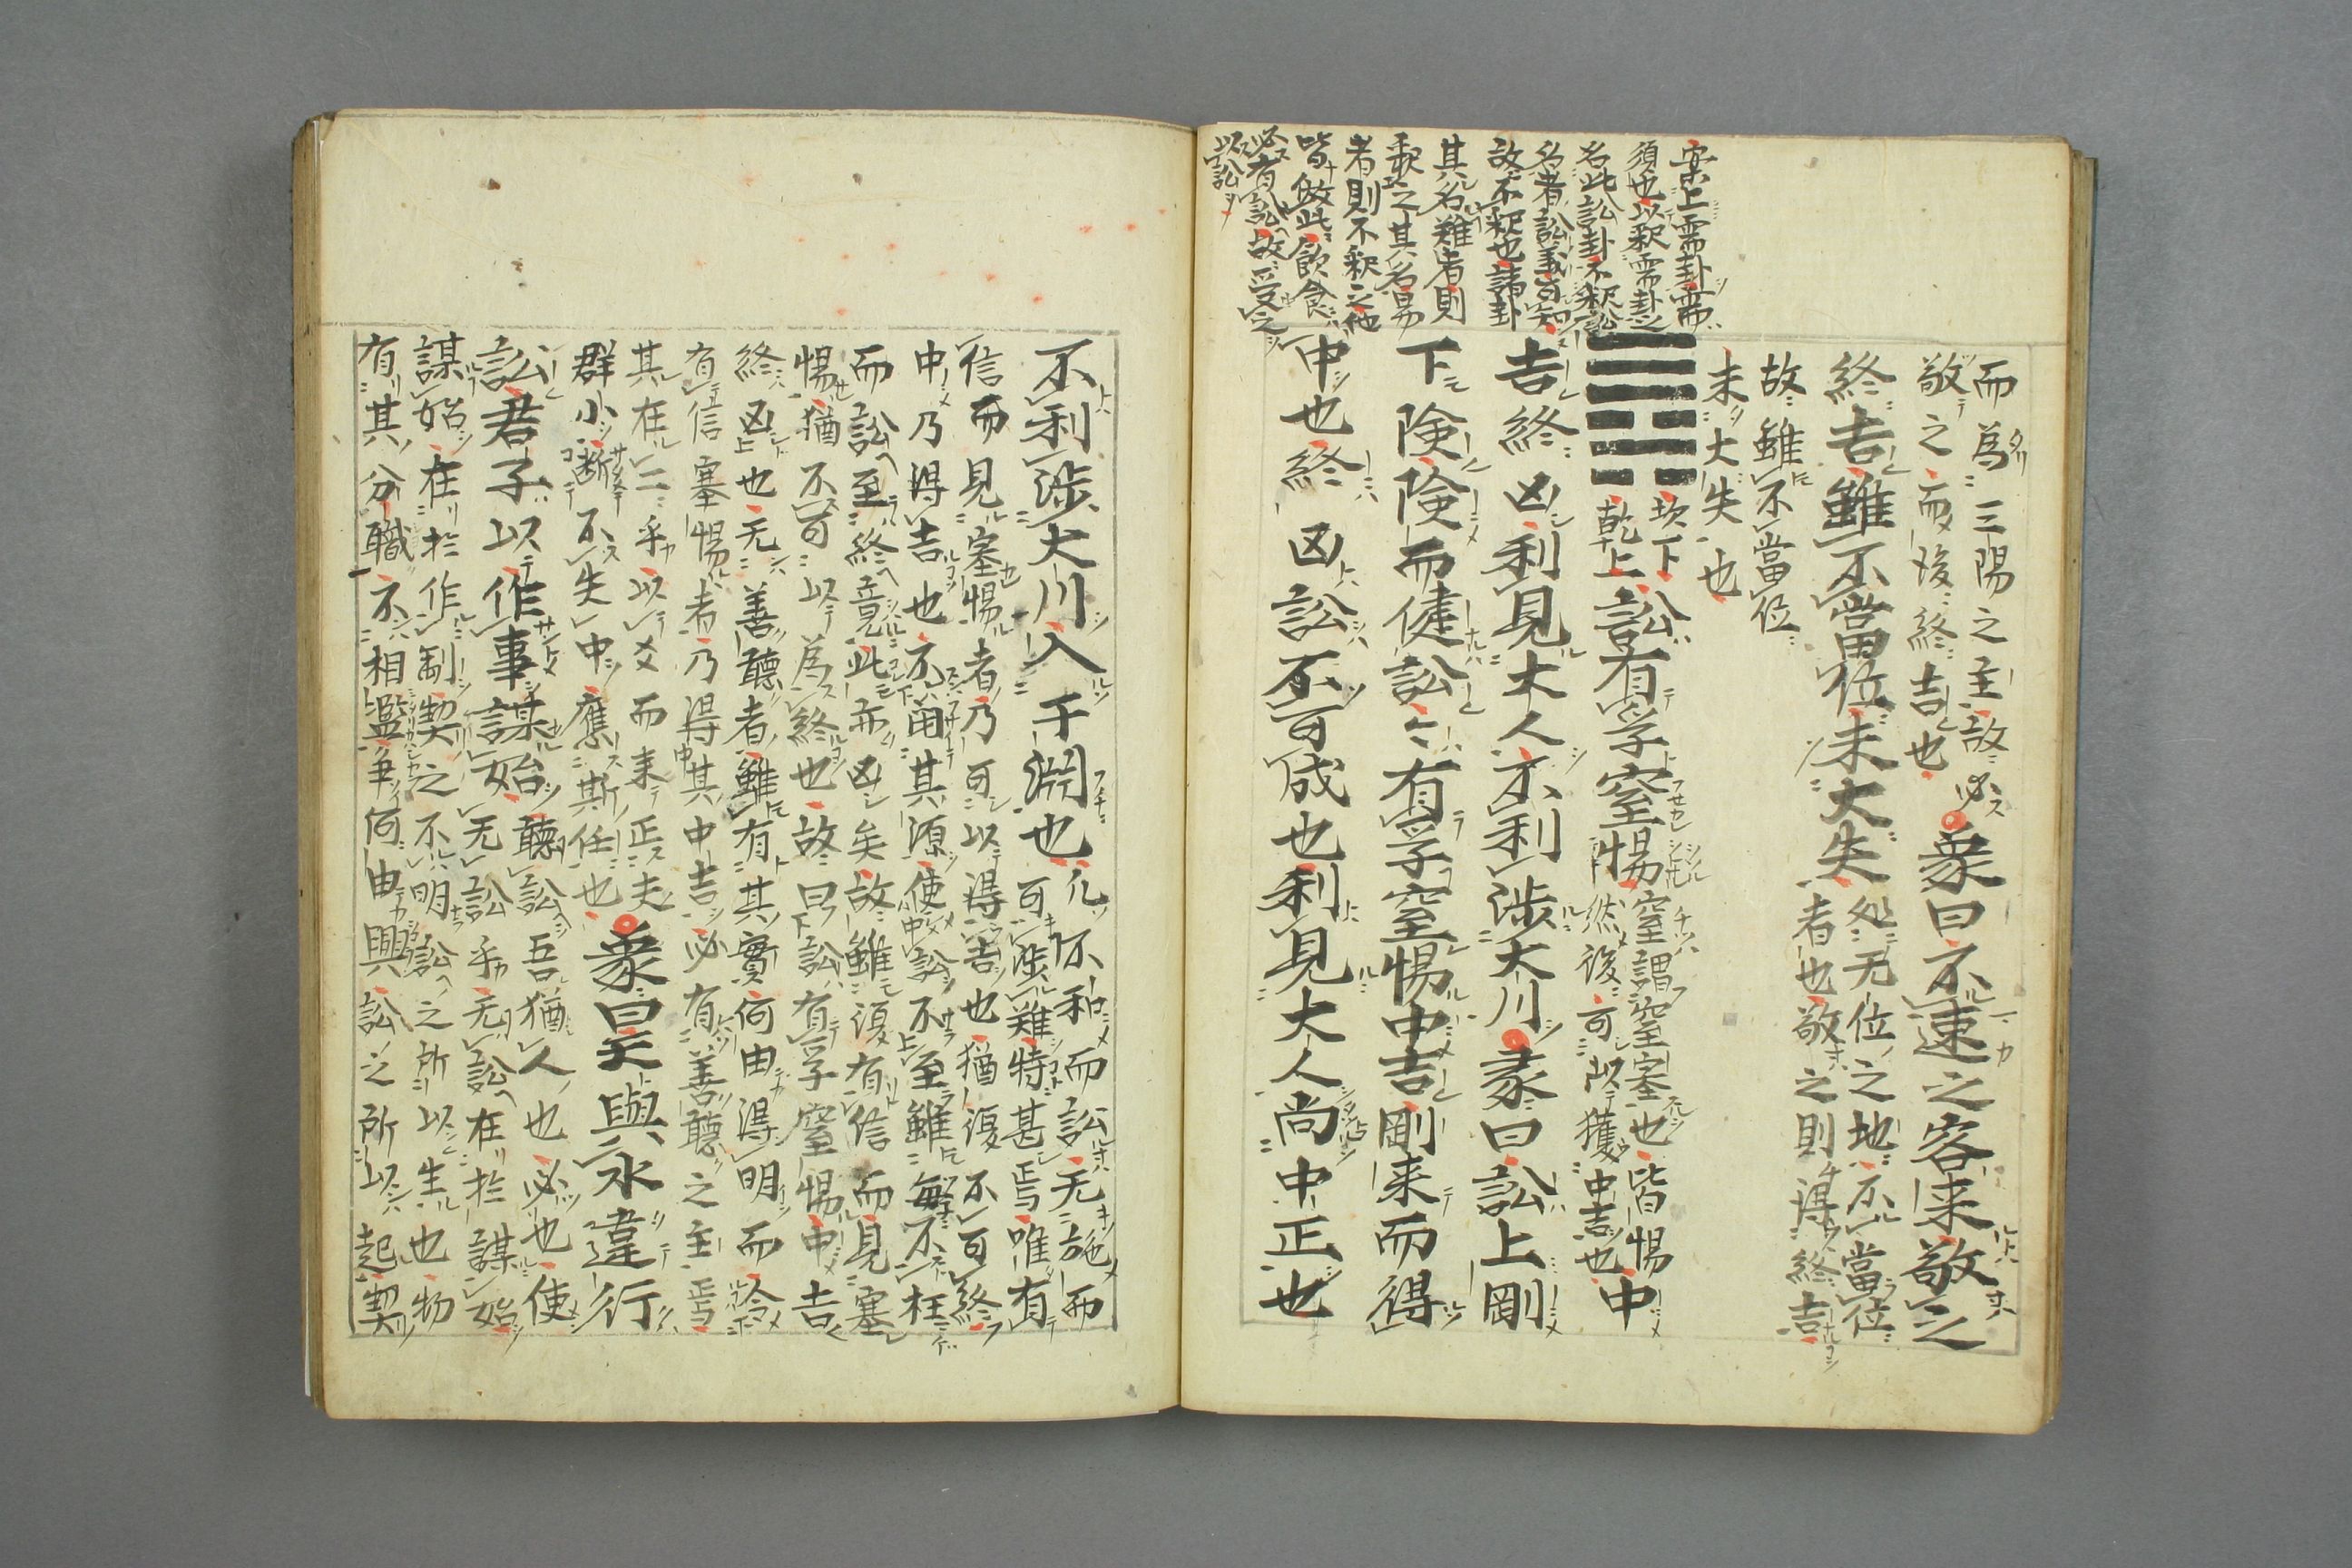 案上需卦需
須也以釈需卦之
名此訟卦不釈訟
名者訟義可知
故不釈也諸卦
其名難者則
釈之其名易
者則不釈之他
皆倣此飲食
必有訟故受之
以訟
而為三陽之主故必
敬之而後終吉也象曰不速之客来敬之
終吉雖不當位未大失處无位之地不當位
者也敬之則得終吉
故雖不當位
未大失也
坎下
乾上
訟有孚窒惕窒謂窒塞也皆惕
然後可以獲中吉也中
吉終凶利見大人不利渉大川彖曰訟上剛
下険険而健訟〻有孚窒惕中吉剛来而得
中也終凶訟不可成也利見大人尚中正也
不利渉大川入于淵也凡不和而訟无施而
可渉難特甚焉唯有
信而見塞惕者乃可以得吉也猶復不可終
中乃得吉也不閇其源使訟不至雖毎不枉
而訟至終竟此亦凶矣故雖復有信而見塞
惕猶不可以為終也故曰訟有孚窒惕中吉
終凶也无善聽者雖有其實何由得明而令
有信塞惕者乃得其中吉必有善聽之主焉
其在二乎以爻而来正夫
群小断不失中應斯任也象曰天與水違行
訟君子以作事謀始聽訟吾猶人也必也使
无訟乎无訟在於謀始
謀始在於作制契之不明訟之所以生也物
有其分職不相濫争何由興訟之所以起契